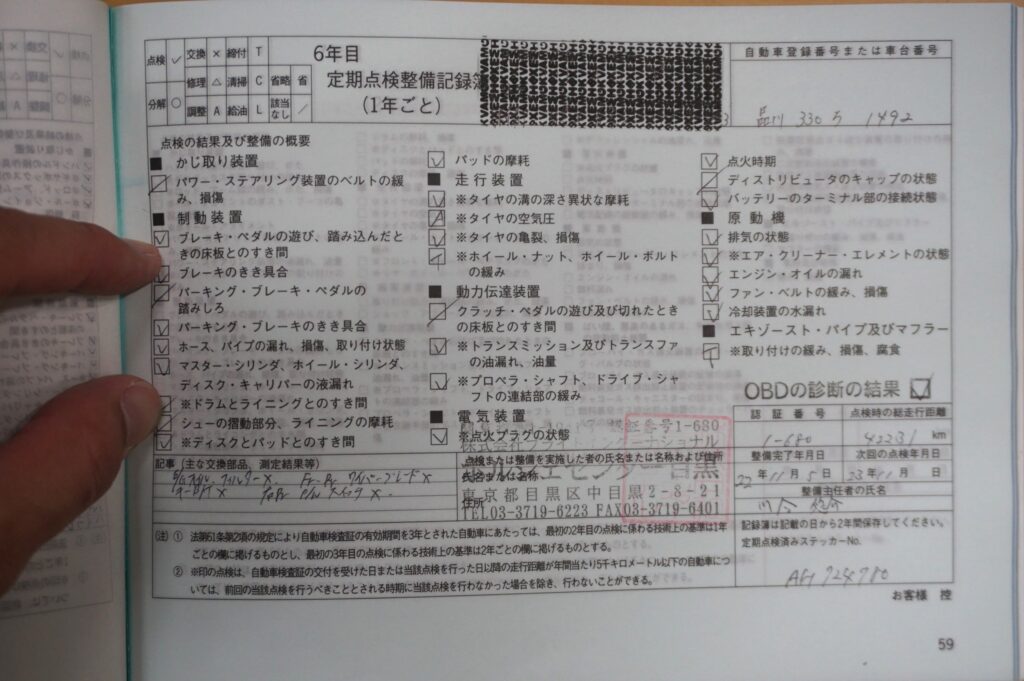 点検 ✓ 交換 × 締付 T
修理 △ 清掃 C 省略 省
分解 ○ 調整 A 給油 L 該当なし /
6年目
定期点検整備記録簿
(1年ごと)
自動車登録番号または車台番号
品川 330 5 1492
点検の結果及び整備の概要
■ かじ取り装置
パワー・ステアリング装置のベルトの緩
み、損傷
■ 制動装置
ブレーキ・ペダルの遊び、踏み込んだと
きの床板とのすき間
ブレーキのきき具合
パーキング・ブレーキ・ペダルの
踏みしろ
パーキング・ブレーキのきき具合
ホース、パイプの漏れ、損傷、取り付け状態
マスター・シリンダ、ホイール・シリンダ、
ディスク・キャリパーの液漏れ
※ドラムとライニングとのすき間
シューの摺動部分、ライニングの摩耗
※ディスクとパッドとのすき間
パッドの摩耗
■ 走行装置
※タイヤの溝の深さ異状な摩耗
※タイヤの空気圧
※タイヤの亀裂、損傷
※ホイール・ナット、ホイール・ボルト
の緩み
■ 動力伝達装置
クラッチ・ペダルの遊び及び切れたとき
の床板とのすき間
※トランスミッション及びトランスファ
の油漏れ、油量
※プロペラ・シャフト、ドライブ・シャ
フトの連結部の緩み
■ 電気装置
※点火プラグの状態
点火時期
ディストリビュータのキャップの状態
バッテリーのターミナル部の接続状態
■ 原動機
排気の状態
※エア・クリーナー・エレメントの状態
エンジン・オイルの漏れ
ファン・ベルトの緩み、損傷
冷却装置の水漏れ
■ エキゾースト・パイプ及びマフラー
※取り付けの緩み、損傷、腐食
OBDの診断の結果 ✓
認証番号 点検時の総走行距離
1-680 42231 km
整備完了年月日 次回の点検年月日
22年11月5日 23年11月
整備主任者の氏名
記録簿は記載の日から2年間保存してください。
定期点検済みステッカーNo.
記事(主な交換部品、測定結果等)
認証番号1-680
点検または整備を実施した者の氏名または名称および住所
氏名または名称
住所
東京都目黒区中目黒2-8-21
TEL03-3719-6223 FAX03-3719-6401
(注) ① 法第61条第2項の規定により自動車検査証の有効期間を3年とされた自動車にあたっては、最初の2年目の点検に係わる技術上の基準は1年
ごとの欄に掲げるものとし、最初の3年目の点検に係わる技術上の基準は2年ごとの欄に掲げるものとする。
② ※印の点検は、自動車検査証の交付を受けた日または当該点検を行った日以降の走行距離が年間当り5千キロメートル以下の自動車につ
いては、前回の当該点検を行うべきこととされる時期に当該点検を行わなかった場合を除き、行わないことができる。
お客様 控
59